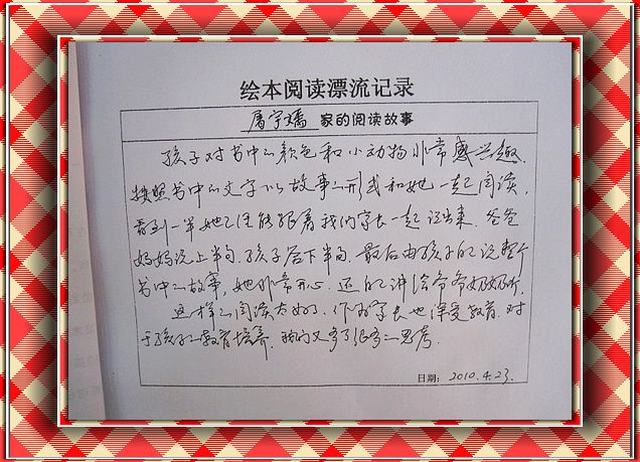 绘本阅读漂流记录
屠宇嬌 家的阅读故事
孩子对书中的颜色和小动物非常感兴趣,
按照书中的文字以故事的形式和她一起阅读,
看到一半她已经能跟着我们家长一起说出来。爸爸
妈妈说上半句,孩子后下半句,最后由孩子自己说整个
书中的故事,她非常开心,还自己讲给爷爷奶奶听,
这样的阅读太好了,作为家长也深受教育,对
于孩子的教育培养,我们又多了很多的思考。
日期:2010.4.23.